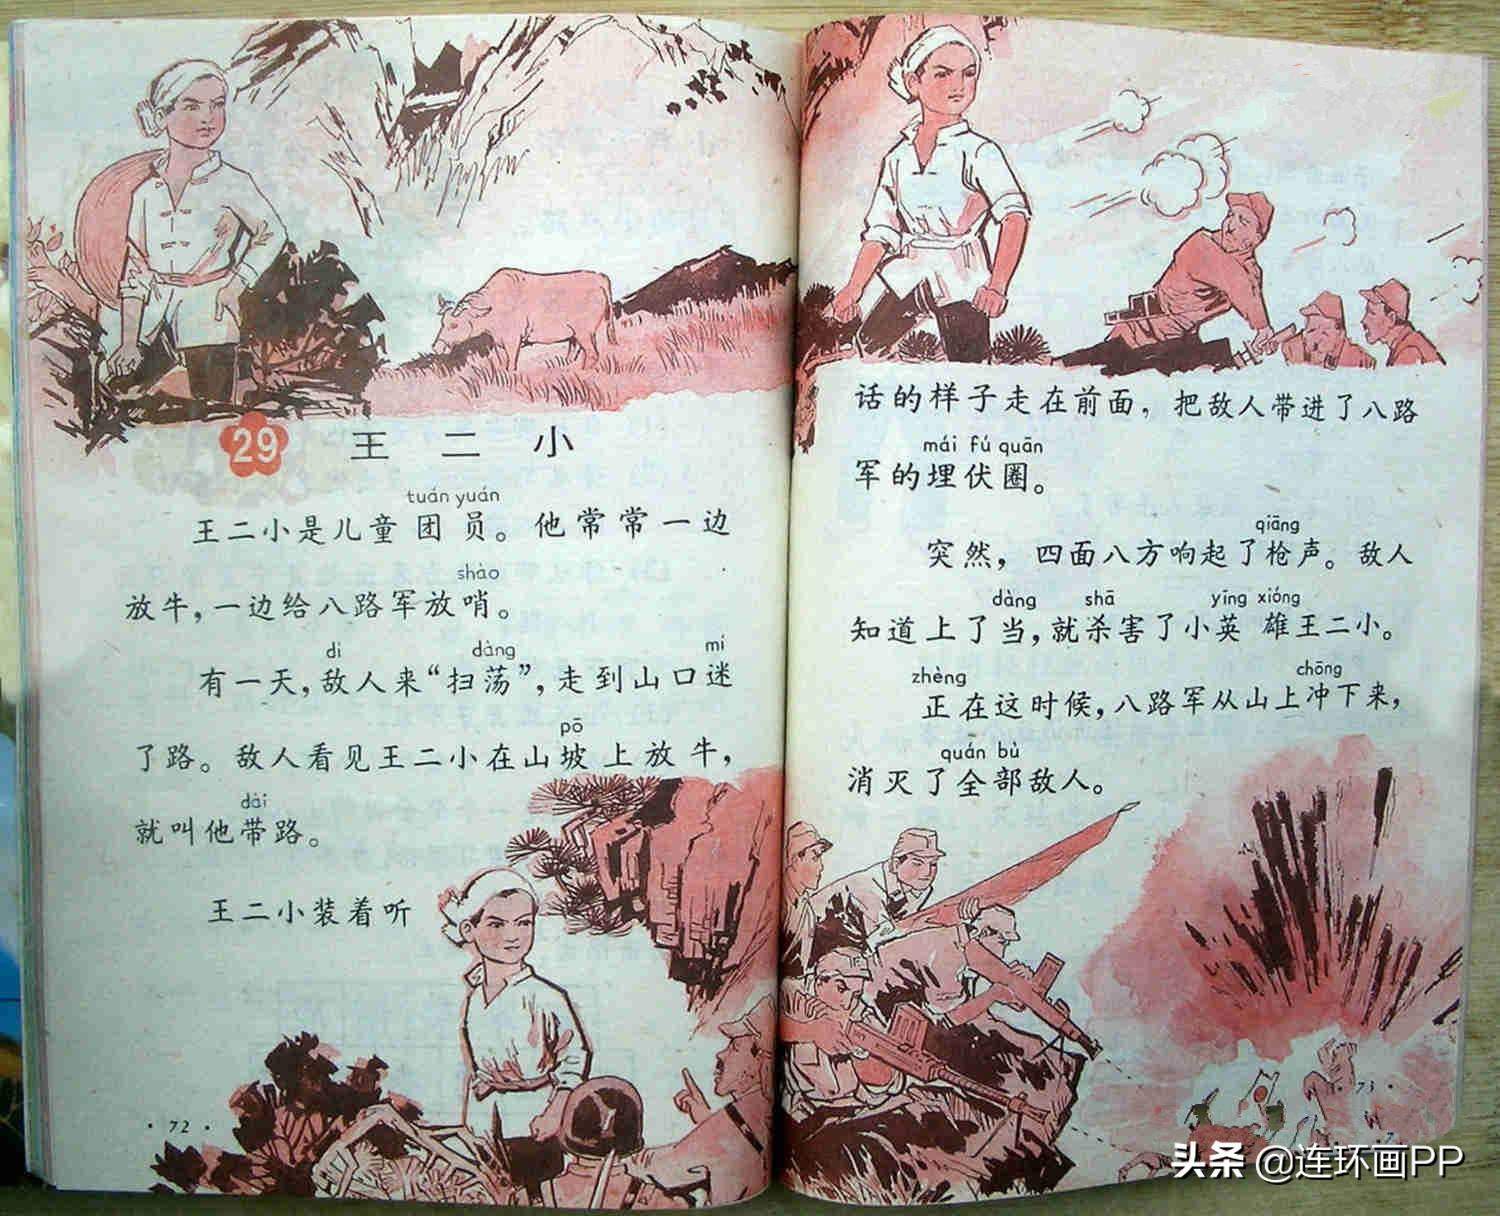 29 王二小
tuán yuán
王二小是儿童团员。他常常一边
shào
放牛，一边给八路军放哨。
dí dàng mí
有一天，敌人来“扫荡”，走到山口迷
pō
了路。敌人看见王二小在山坡上放牛，
dài
就叫他带路。
王二小装着听
·72·
话的样子走在前面，把敌人带进了八路
mái fú quān
军的埋伏圈。
qiāng
突然，四面八方响起了枪声。敌人
dàng shā yīng xióng
知道上了当，就杀害了小英雄王二小。
zhèng chōng
正在这时候，八路军从山上冲下来，
quán bù
消灭了全部敌人。
·73·
头条 @连环画PP